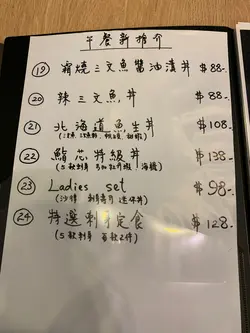 午餐新推介
19 霜燒三文魚醬油漬丼 $88-
20 辣三文魚丼 $88-
21 北海道魚生丼 $108-
22 鮨芯特級丼 $138-
23 Ladies set $98-
(沙律 刺壽司 迷你丼)
24 特選刺身定食 $128-